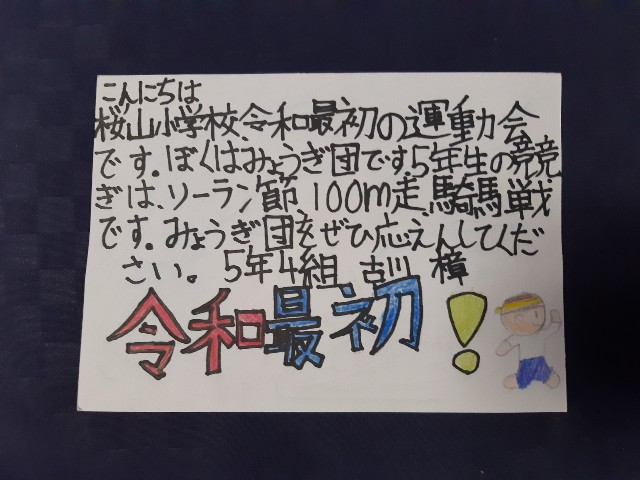 こんにちは
桜山小学校、令和最初の運動会
です。ぼくはみょうぎ団です。5年生の競
ぎは、ソーラン節、100m走、騎馬戦
です。みょうぎ団をぜひ応えんしてくだ
さい。5年4組 古川 樟
令和最初!